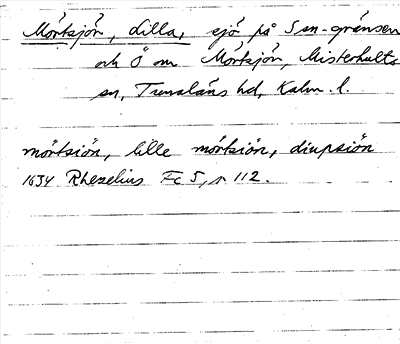 Mörtsjön, Lilla, sjö på S sn-gränsen
och Ö om Mörtsjön, Misterhults
sn, Tunaläns hd, Kalm. l.
mörtsiön, lille mörtsiön, diupsiön
1634 Rhezelius Fc 5, s 112.